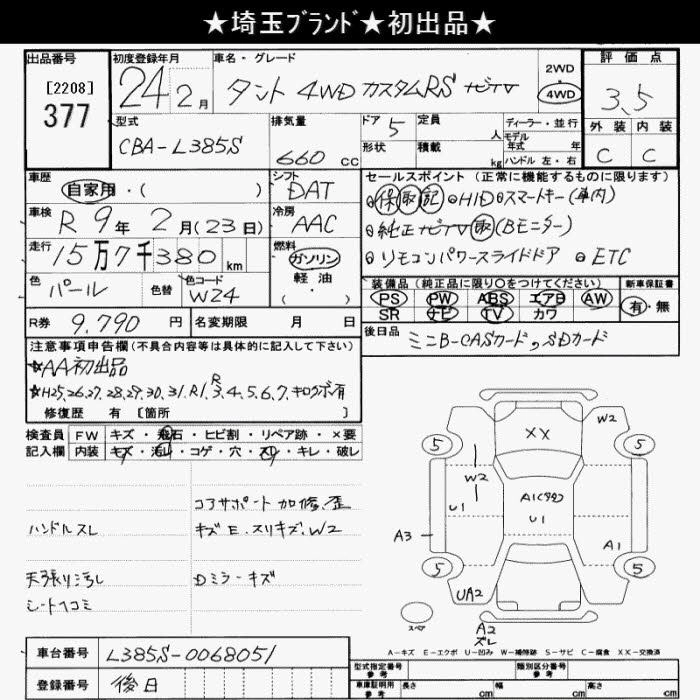 ★埼玉ﾌﾞﾗﾝﾄﾞ★初出品★
出品番号
[2208]
377
初度登録年月
24年2月
車名・グレード
タント 4WD カスタムRS ナビTV
2WD
4WD
評価点
3.5
外装 内装
C C
型式
CBA-L385S
排気量
660 cc
ドア 5
形状
定員 人
積載 kg
ディーラー・並行
モデル年式 年
ハンドル 左・右
車歴
自家用・( )
シフト
DAT
車検
R9年2月(23日)
冷房
AAC
走行
15万7千380 km
燃料
ガソリン
軽油
( )
色
パール
色替
色コード
W24
セールスポイント(正常に機能するものに限ります)
保 取 記 HID スマートキー(車内)
純正ナビTV 取 (Bモニター)
リモコンパワースライドドア ETC
装備品(純正品に限り○をつけてください)
PS PW ABS エアB AW
SR ナビ TV カワ
新車保証書
有・無
R券 9,790円
名変期限 月 日
後日品 ミニB-CASカード,SDカード
注意事項申告欄(不具合内容等は具体的に記入して下さい)
★AA初出品
★H25,26,27,28,29,30,31,R1,R3,4,5,6,7,キロクボ有
修復歴 有 [箇所
検査員記入欄
FW キズ・飛石・ヒビ割・リペア跡・×要
内装 キズ・汚れ・コゲ・穴・スレ・キレ・破レ
コアサポート加修、歪
ハンドルスレ
キズE.スリキズ、W2
天張り汚れ
Dミラーキズ
シートヘコミ
XX
W2
5
5
W2
U1
A1(タタ)
U1
A3
A1
5
5
UA2
A2
ズレ
スペア
A-キズ E-エクボ U-凹み W-補修跡 S-サビ C-腐食 XX-交換済
車台番号 L385S-0068051
登録番号 後日
型式指定番号 参考
類別区分番号 参考
車庫証明用 参考
長さ cm
幅 cm
高さ cm